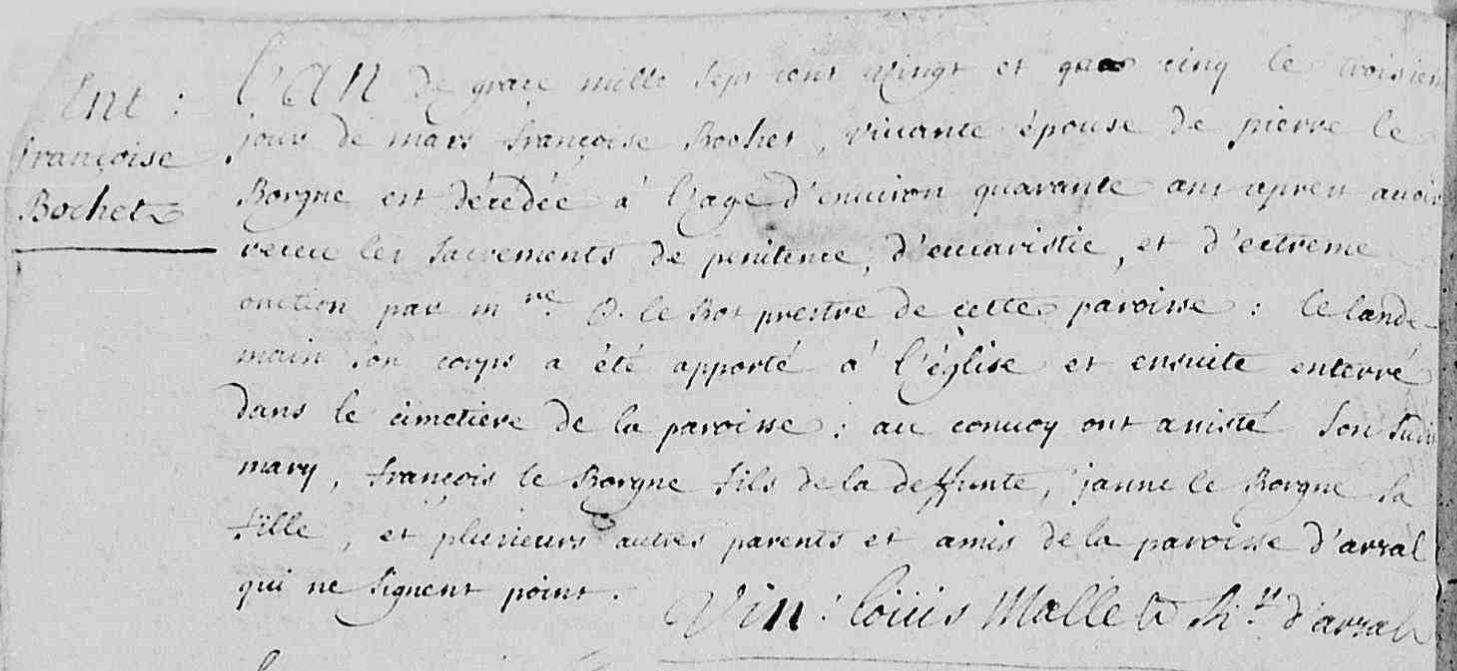 Ent :
françoise
Bochet
L'AN de grace mille sept cent vingt et cinq le troisiem
jour de mars françoise Bochet, vivante épouse de pierre le
Borgne est décédée à l'age d'environ quarante ans apres avoir
receu les sacrements de penitence, d'eucaristie, et d'extreme
onction par mre O. le Bot prestre de cette paroisse : le lande-
main son corps a été apporté à l'église et ensuite enterré
dans le cimetiere de la paroisse : au convoy ont assisté son sudit
mary, françois le Borgne fils de la deffunte, janne le Borgne sa
fille, et plusieurs autres parents et amis de la paroisse d'arzal
qui ne signent point. Vin : loüis Malle d'arzal